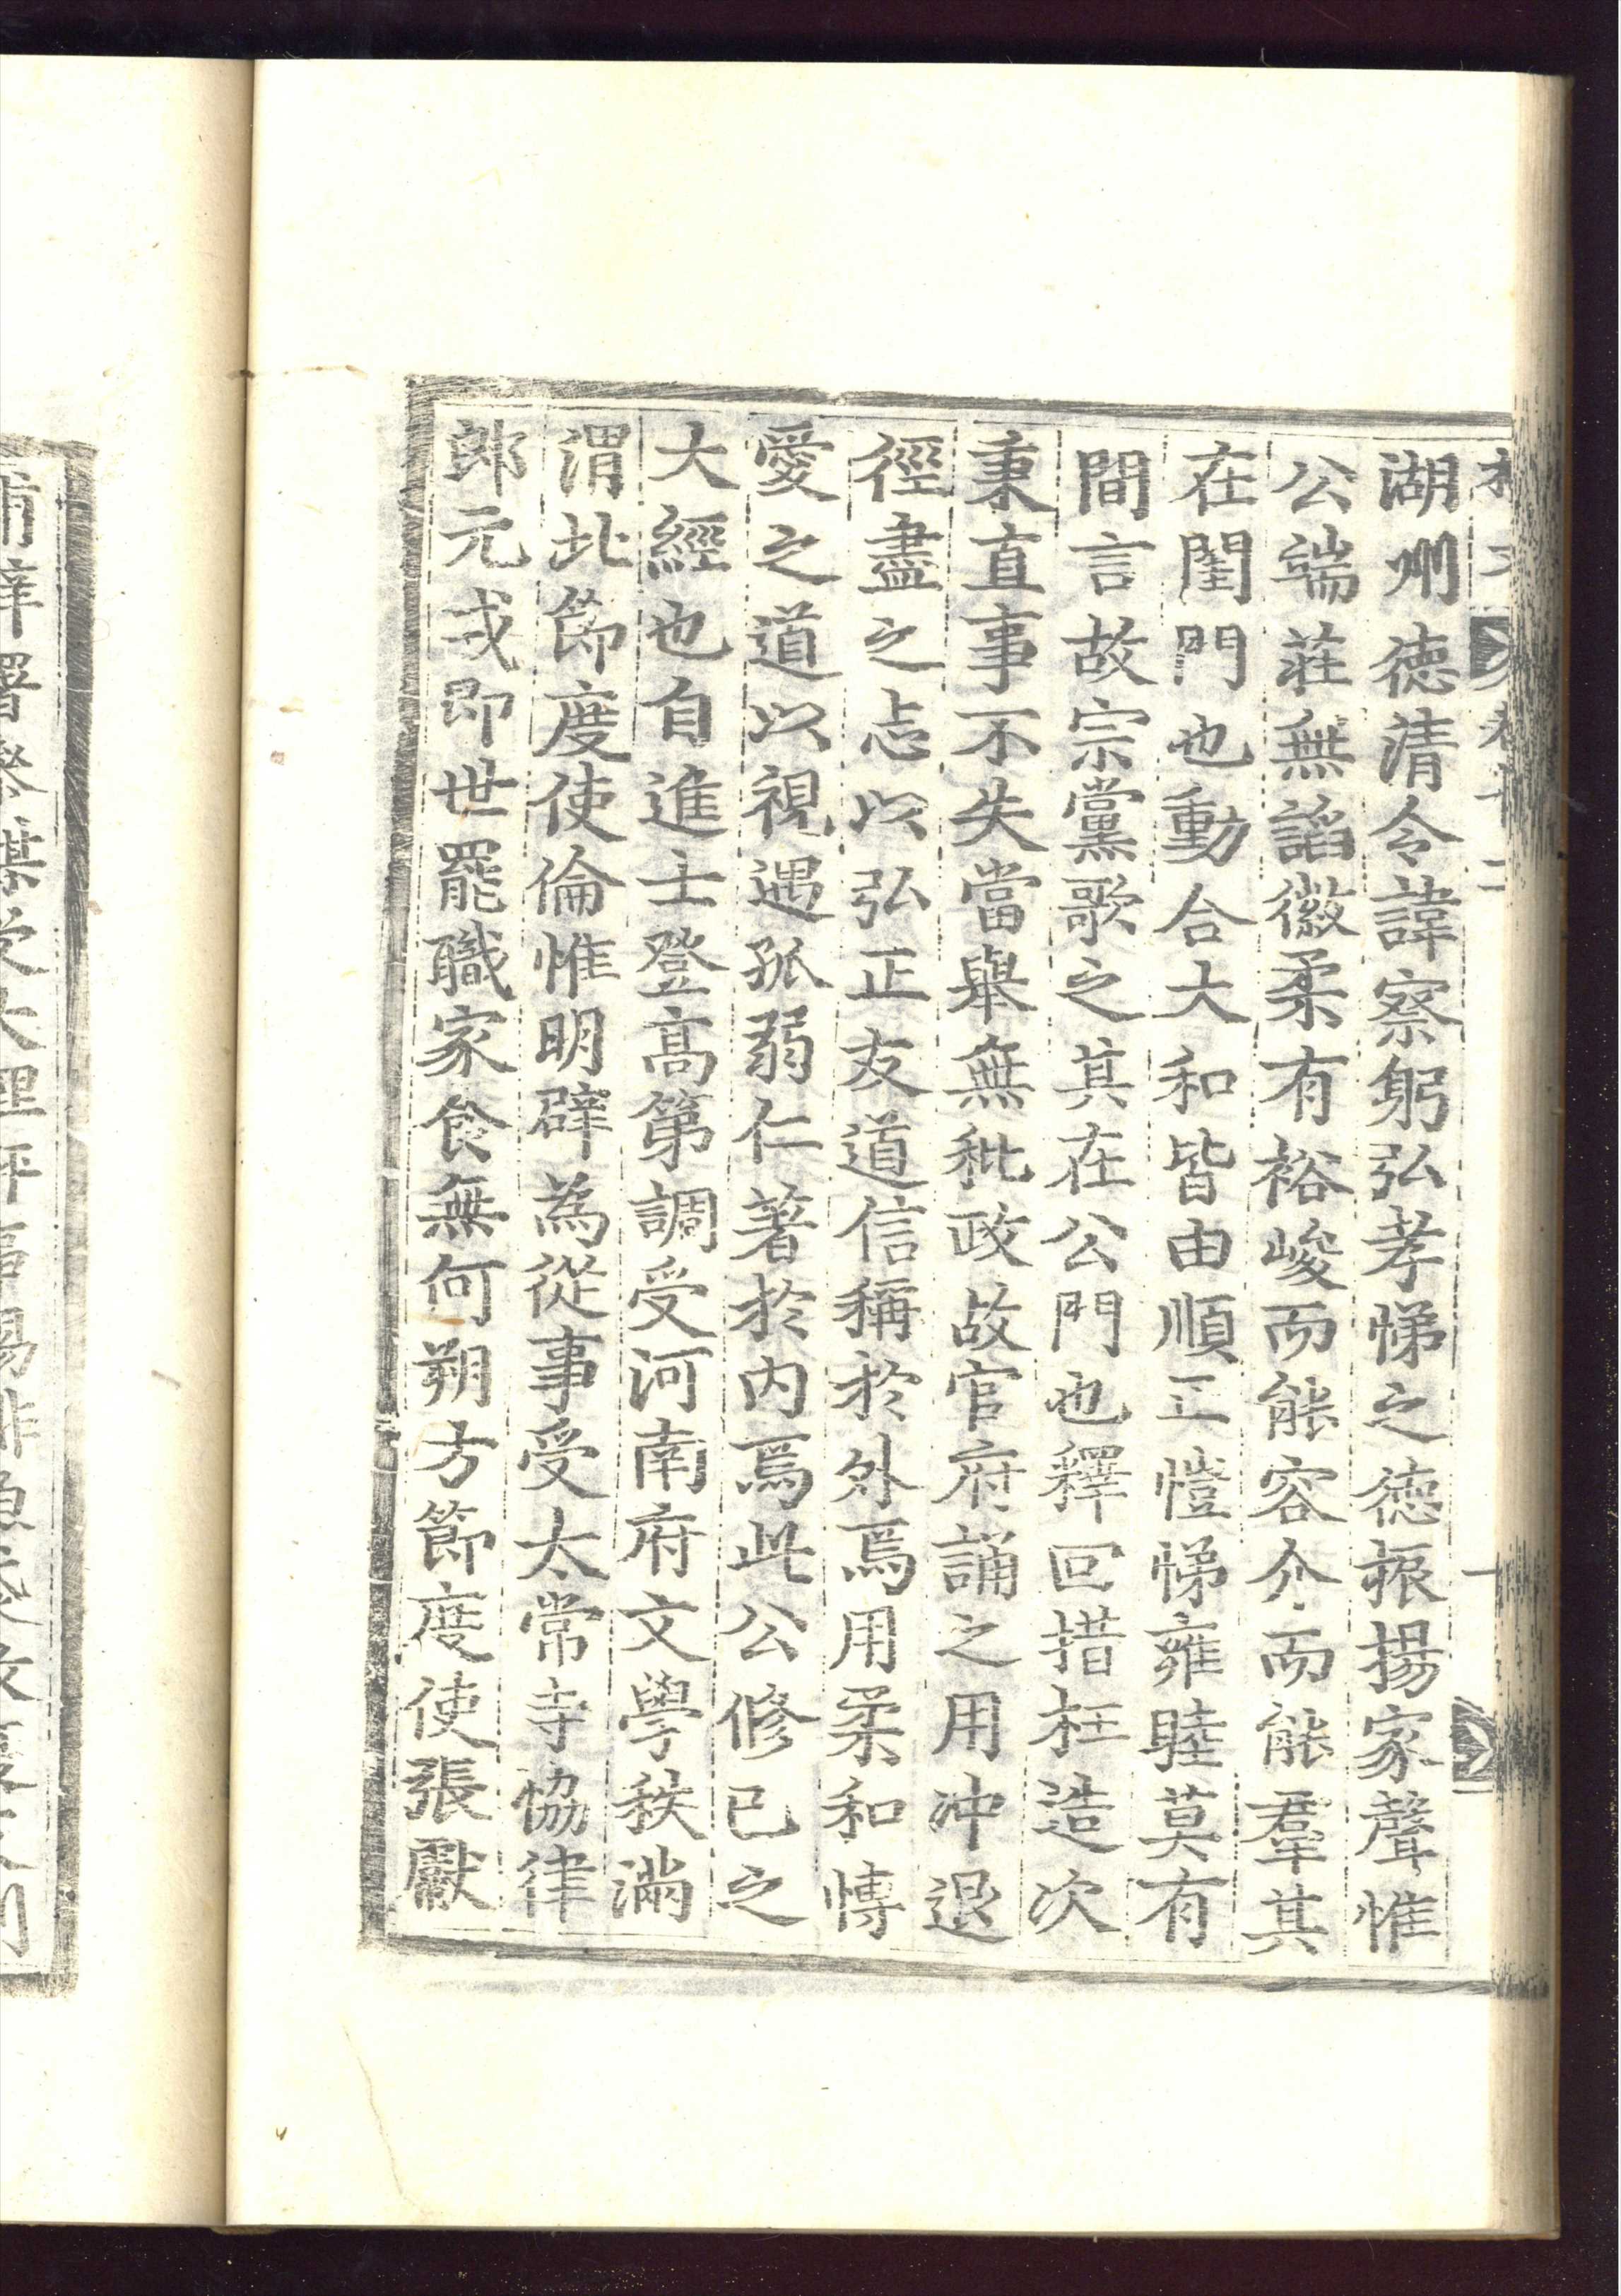 湖州德清令諱察躬弘孝悌之德振揚家聲惟
公端莊無謟徽柔有裕峻而能容介而能羣其
在閨門也動合大和皆由順正愷悌雍睦莫有
間言故宗黨歌之其在公門也釋回措枉造次
秉直事不失當舉無秕政故官府誦之用冲退
徑盡之志以弘正友道信稱於外焉用柔和博
愛之道以視遇孤弱仁著於内焉此公修己之
大經也自進士登高第調受河南府文學秩滿
渭北節度使倫惟明辟為從事受太常寺恊律
郎元戎即世罷職家食無何朔方節度使張獻